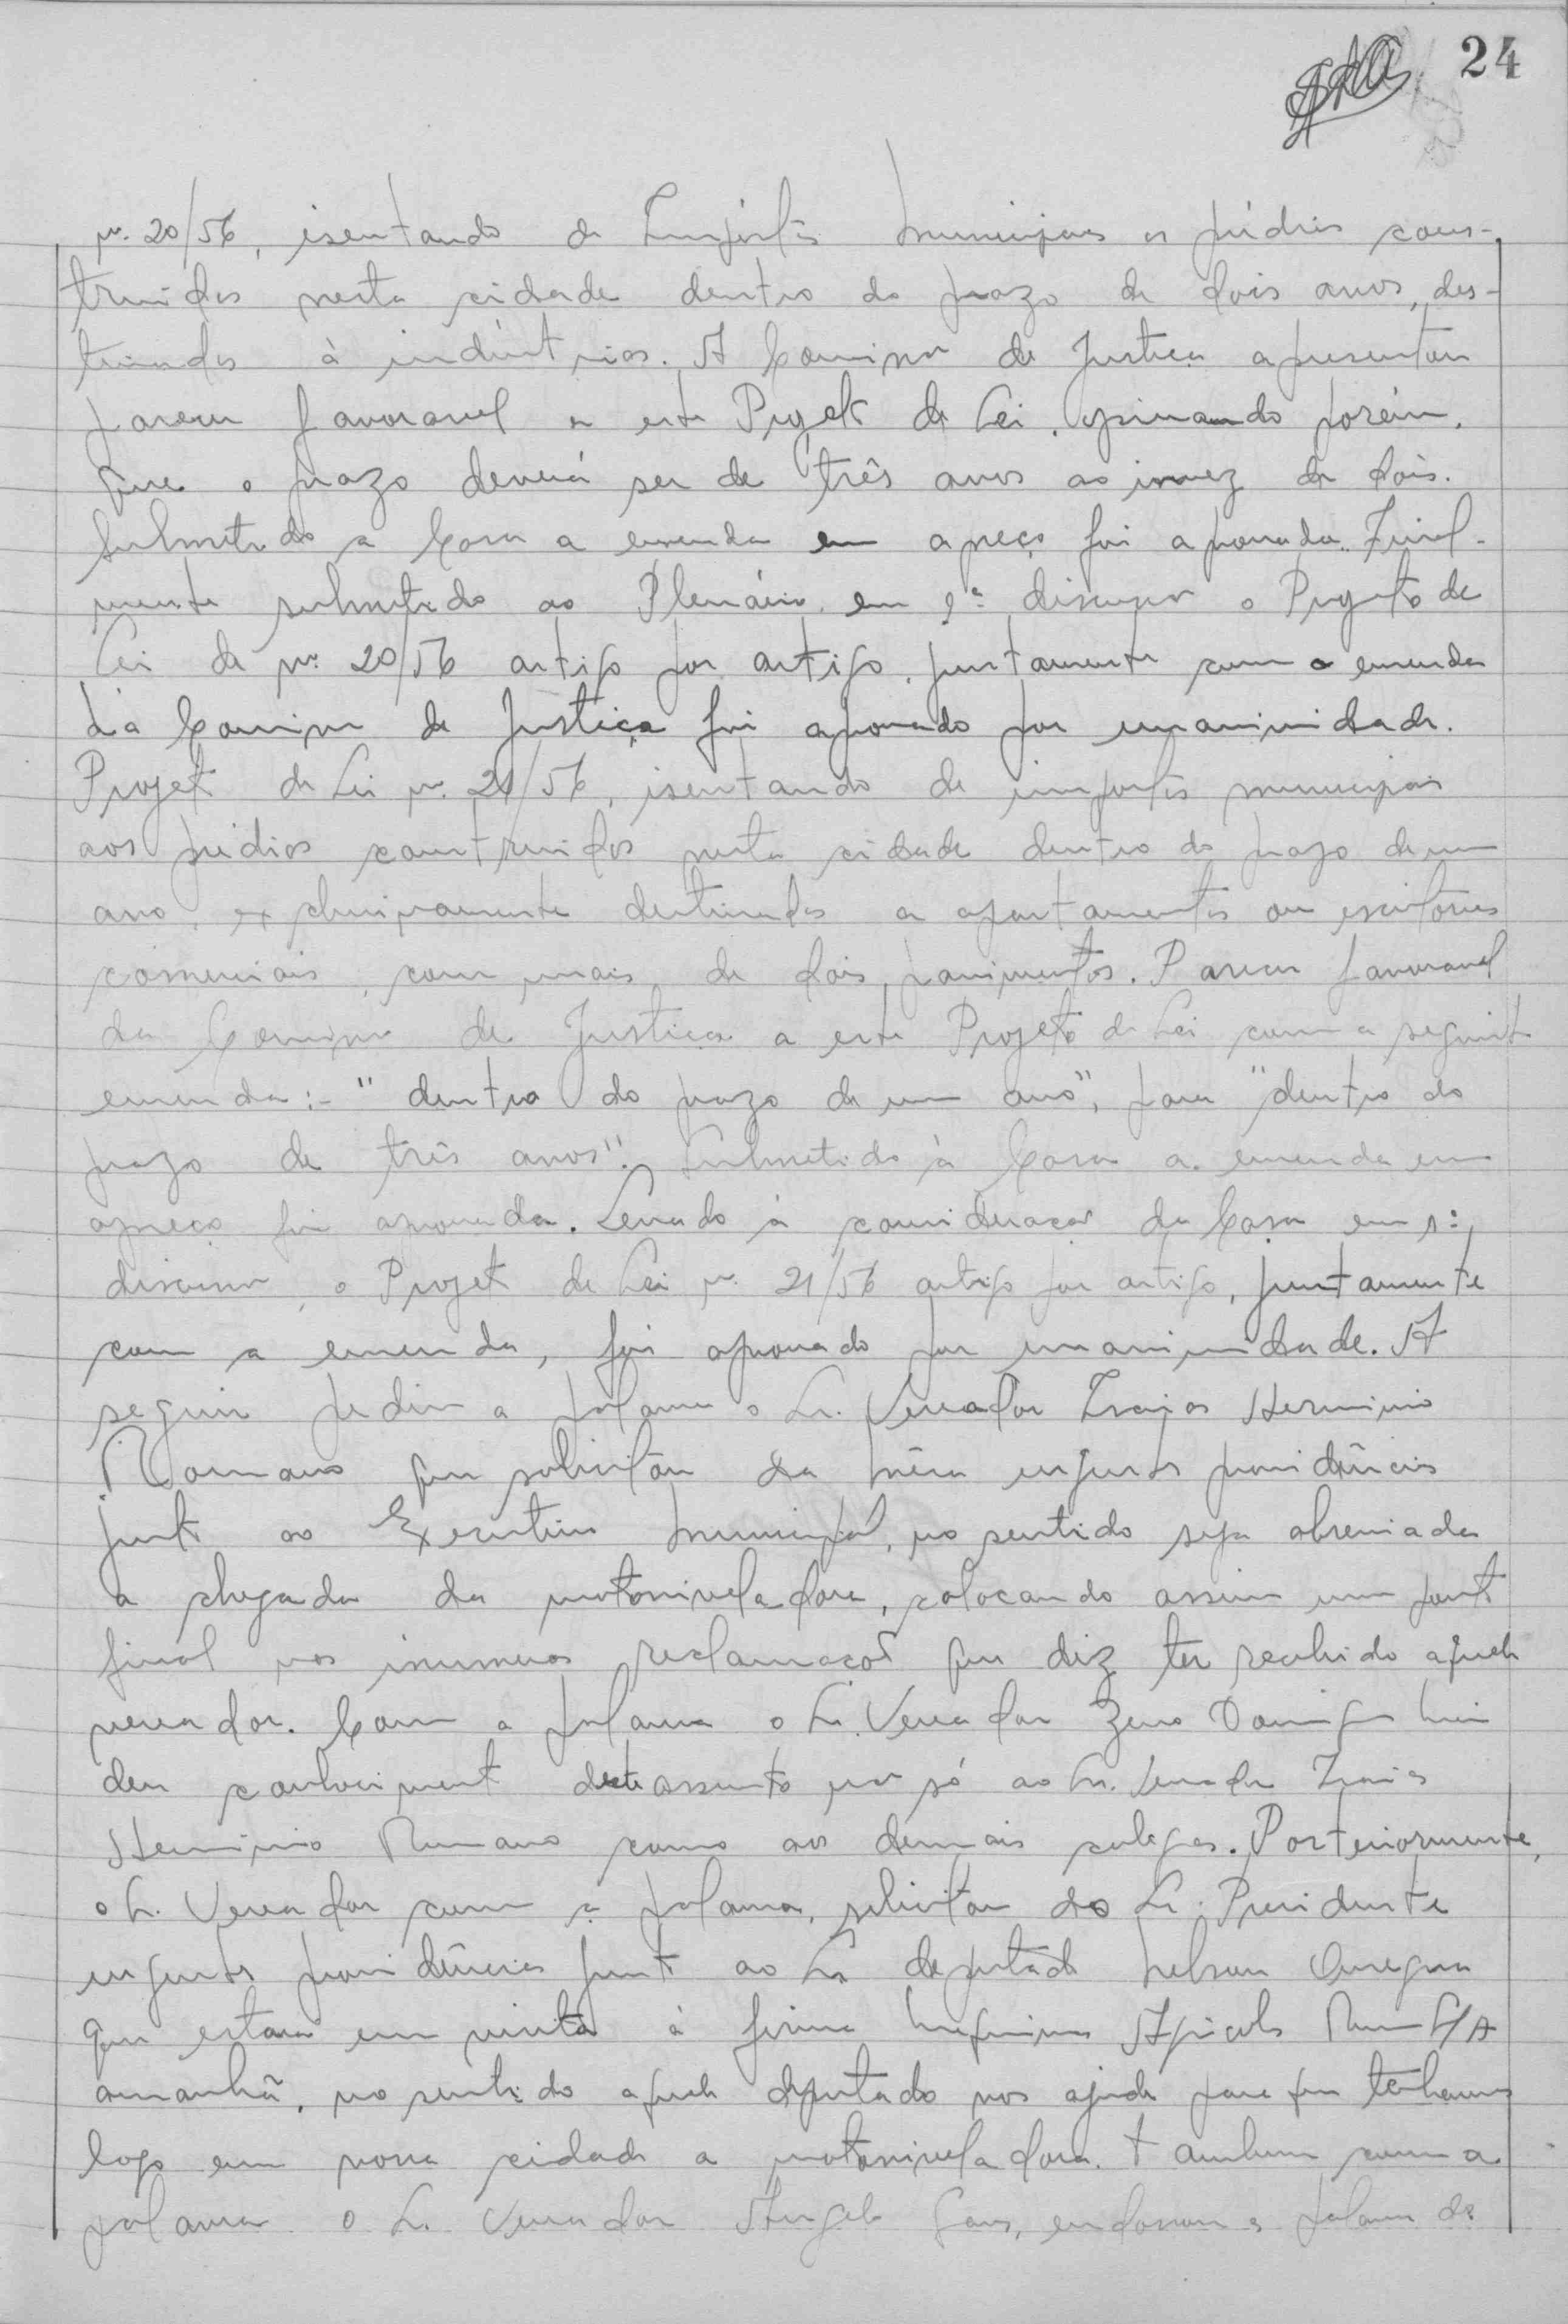 24
nº. 20/56, isentando de Impôstos Municipais os prédios cons-
truidos nesta cidade dentro do prazo de dois anos, des-
tinados à indústrias. A Comissão de Justiça apresentou
parecer favoravel a este Projeto de Lei, opinando porém,
que o prazo deverá ser de três anos ao invez de dois.
Submetido a Casa a emenda em apreço foi aprovada. Final-
mente submetido ao Plenário, em 1ª discussão o Projeto de
Lei de nº 20/56 artigo por artigo, juntamente com a emenda
da Comissão de Justiça foi aprovado por unanimidade.
Projeto de Lei nº. 21/56, isentando de impostos municipais
aos prédios construidos nesta cidade dentro do prazo de um
ano, exclusivamente destinados a apartamentos ou escritórios
comerciais, com mais de dois pavimentos. Parecer favoravel
da Comissão de Justiça a este Projeto de Lei com a seguinte
emenda:- "dentro do prazo de um ano", para "dentro do
prazo de três anos". Submetido à Casa a emenda em
apreço foi aprovada. Levado à consideração da Casa em 1ª
discussão, o Projeto de Lei nº. 21/56 artigo por artigo, juntamente
com a emenda, foi aprovado por unanimidade. A
seguir pediu a palavra o Sr. Vereador Isaias Herminio
Romano que solicitou da Mêsa urgentes providências
junto ao Executivo Municipal, no sentido seja abreviada
a chegada da motoniveladora, colocando assim um ponto
final nas inumeras reclamações que diz ter recebido aquele
vereador. Com a palavra o Sr. Vereador Zeno Domingos
deu conhecimento deste assunto não só ao Sr. Vereador Isaias
Herminio Romano como aos demais colegas. Posteriormente,
o Sr. Vereador com a palavra, solicitou do Sr. Presidente
urgentes providências junto ao Sr. deputado Nelson Omegna
que estará em visita à firma Agricola S/A
amanhã, no sentido aquele deputado nos ajude para que tenhamos
logo em nossa cidade a motoniveladora. Tambem com a
palavra o Sr. Vereador Angelo endossou a palavra do